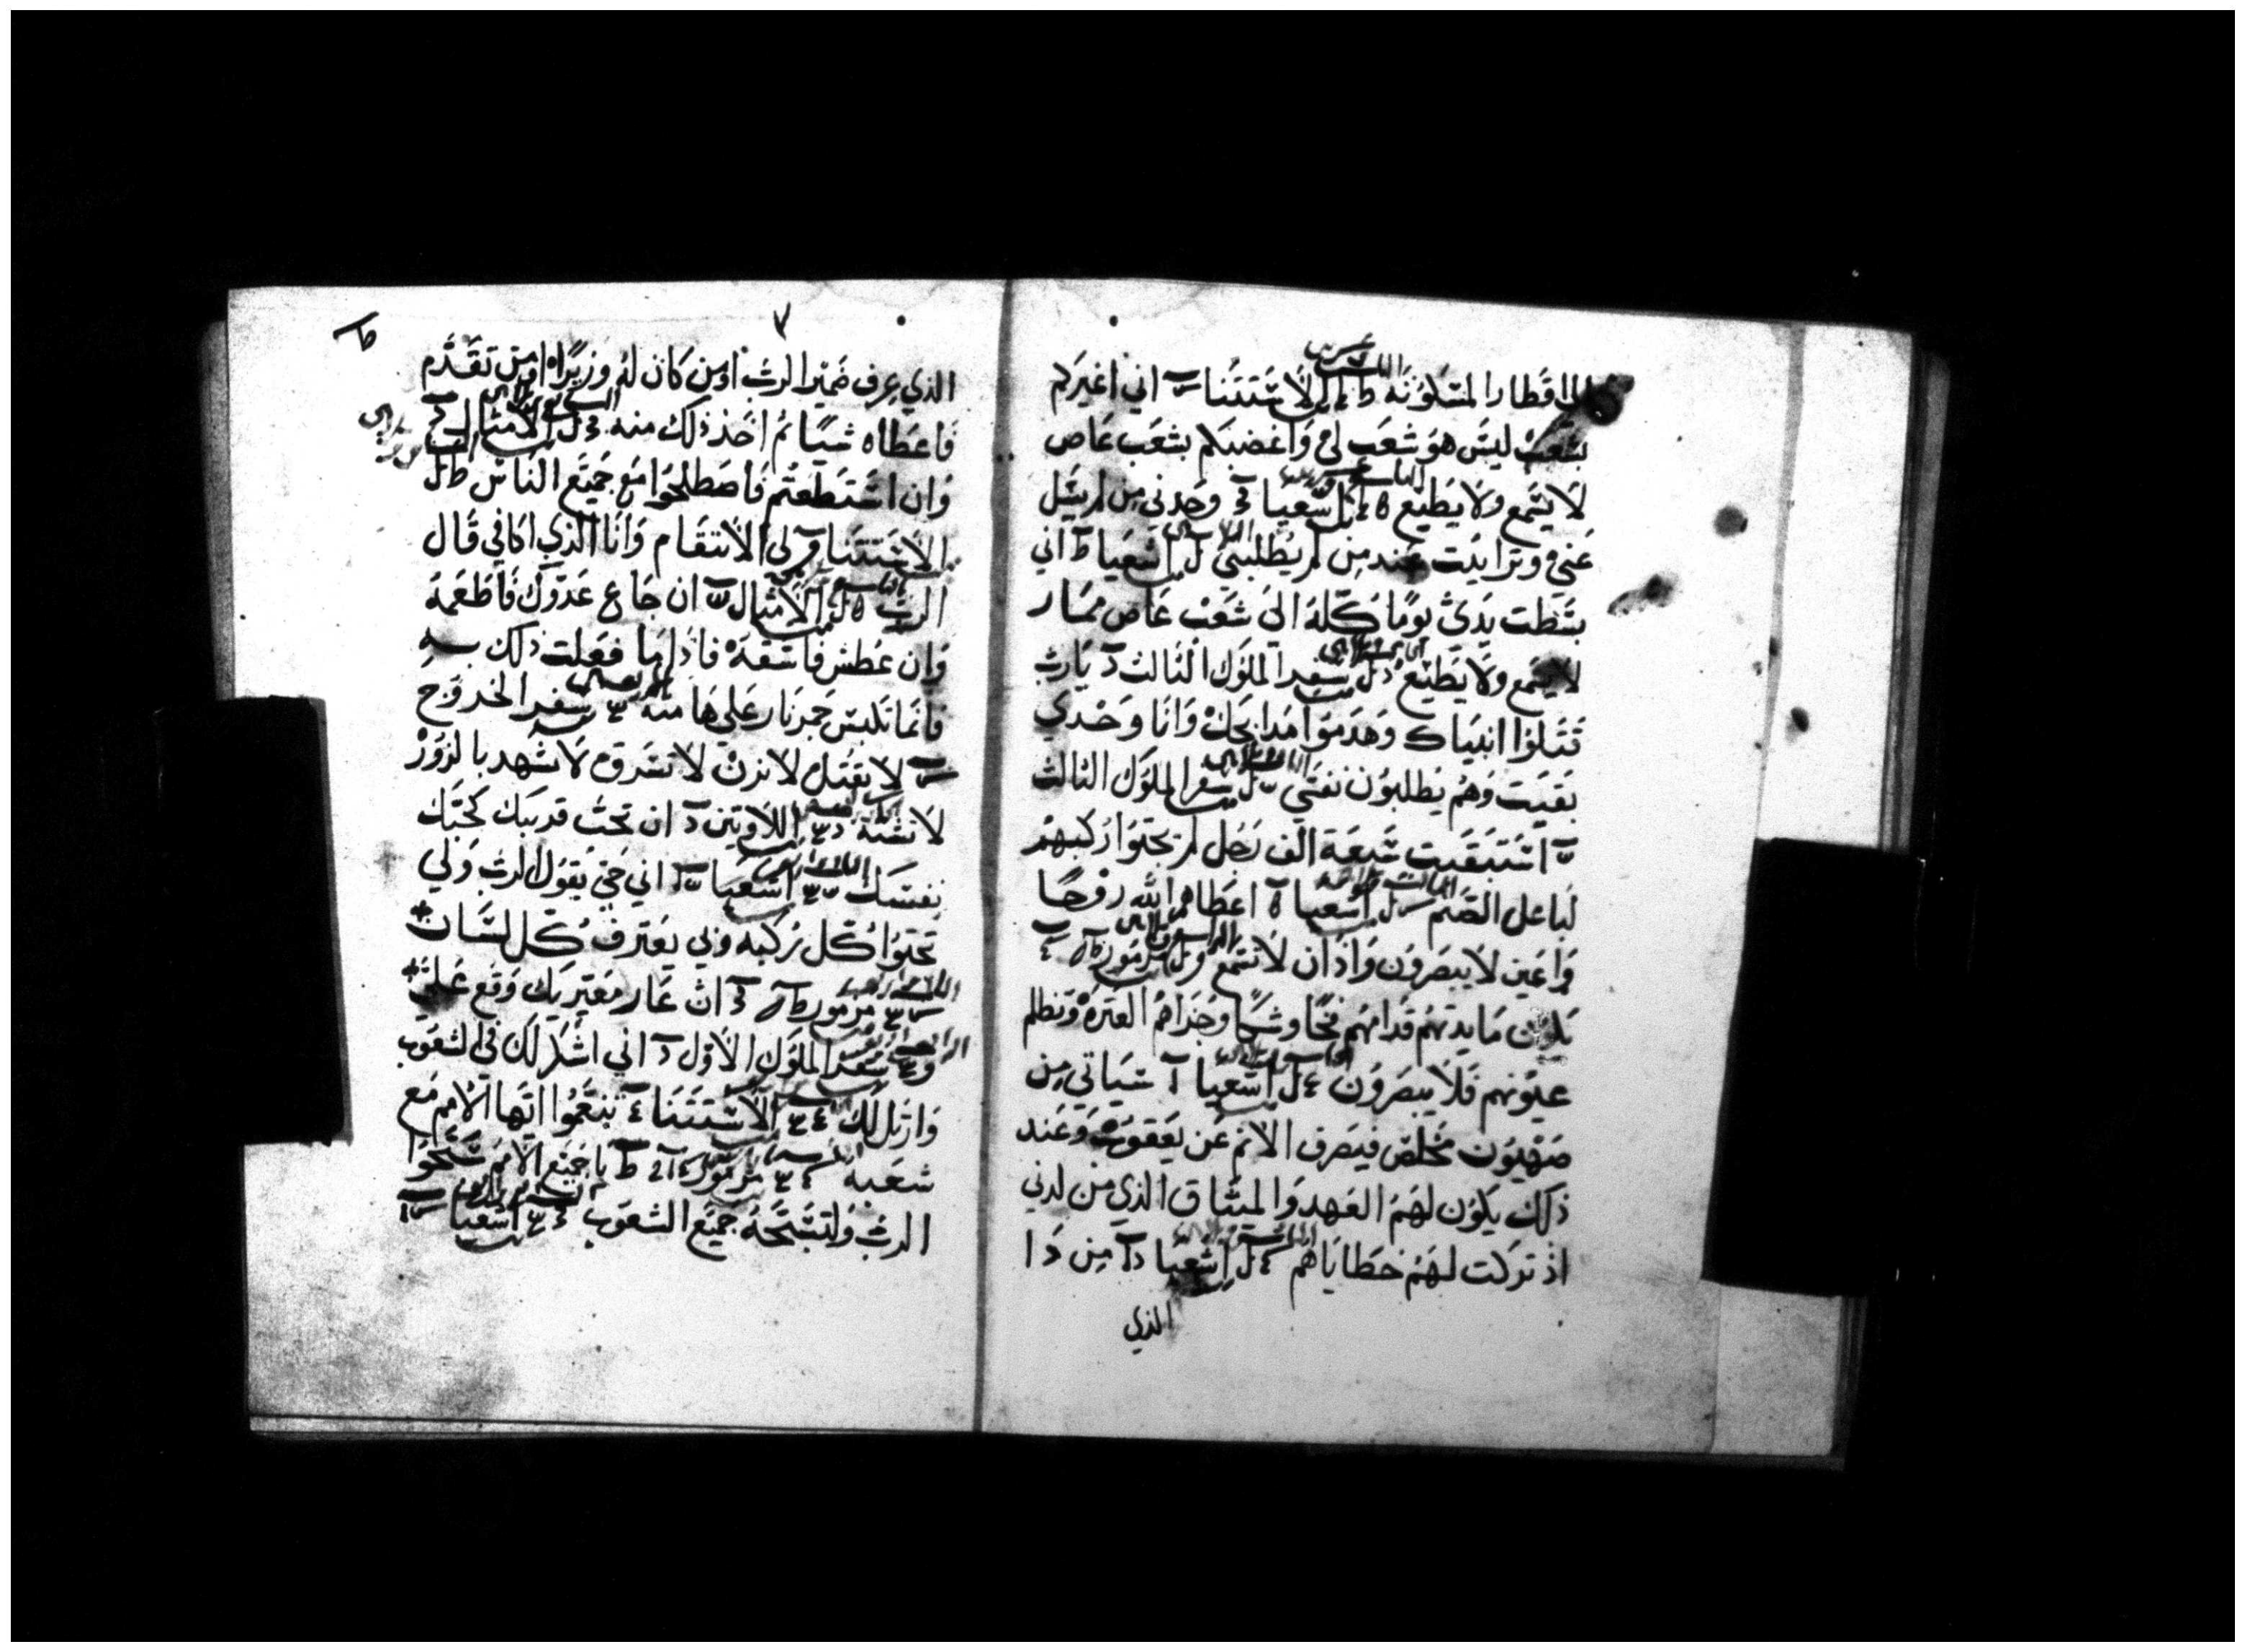 الاقطار المسكونه الاستتنا اني اغيركم
بشعب ليس هو شعب لي واغضبكم بشعب عاص
لا يسمع ولا يطيع اشعيا وجدني من لم يسل
عني وترايت عند من لم يطلبني اشعيا اني
بسطت يدي يوما كله الى شعب عاص ممار
لا يسمع ولا يطيع سفر الملوك الثالث يا رب
قتلوا انبياك وهدموا مدابحك وانا وحدي
بقيت وهم يطلبون نفسي سفر الملوك الثالث
استبقيت سبعة الف رجل لم يجتوا ركبهم
لباعل الصنم اشعيا اعطاهم الله روحا
واعين لا يبصرون واذان لا تسمع مزمور
تكون مايدتهم قدامهم فخا وشركا وجزاهم العثره وتظلم
عيونهم فلا يبصرون اشعيا سياتي من
صهيون مخلص فيصرف الاثم عن يعقوب وعند
ذلك يكون لهم العهد والميثاق الذي من لدني
اذ تركت لهم خطاياهم اشعيا من دا
الذي
٧
الذي عرف ضمير الرب اومن كان له وزيرا اومن تقدم
فاعطاه شيا ثم اخذ ذلك منه الامثال
وان استطعتم فاصطلحوا مع جميع الناس
الاستتنا لي الانتقام وانا الذي اكافي قال
الرب الامثال ان جاع عدوك فاطعمه
وان عطش فاسقه فاذا ما فعلت ذلك به
فانما تلبس جمر نار على هامته سفر الخروج
لا تقتل لا تزن لا تسرق لا تشهد بالزور
لا تشته اللاويين ان تحب قريبك كحبك
نفسك اشعيا اني حي يقول الرب ولي
تجتوا كل ركبه ولي يعترف كل لسان
مزمور ان عار معيريك وقع علي
سفر الملوك الاول اني اشكر لك في الشعوب
وارتل لك الاستتنا تنعموا ايها الامم مع
شعبه مزمور يا جميع الامم سبحوا
الرب ولتسبحه جميع الشعوب اشعيا